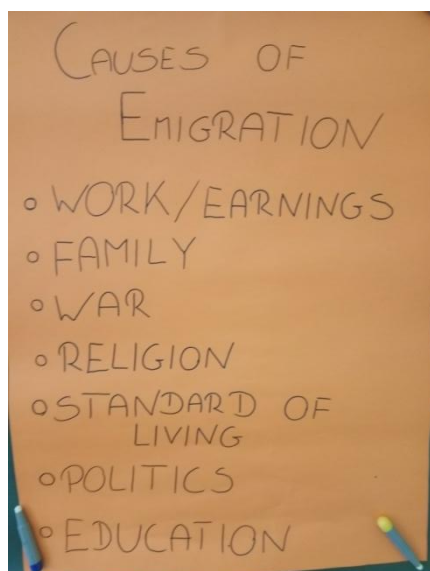 CAUSES OF
EMIGRATION
○ WORK/EARNINGS
○ FAMILY
○ WAR
○ RELIGION
○ STANDARD OF
LIVING
○ POLITICS
○ EDUCATION